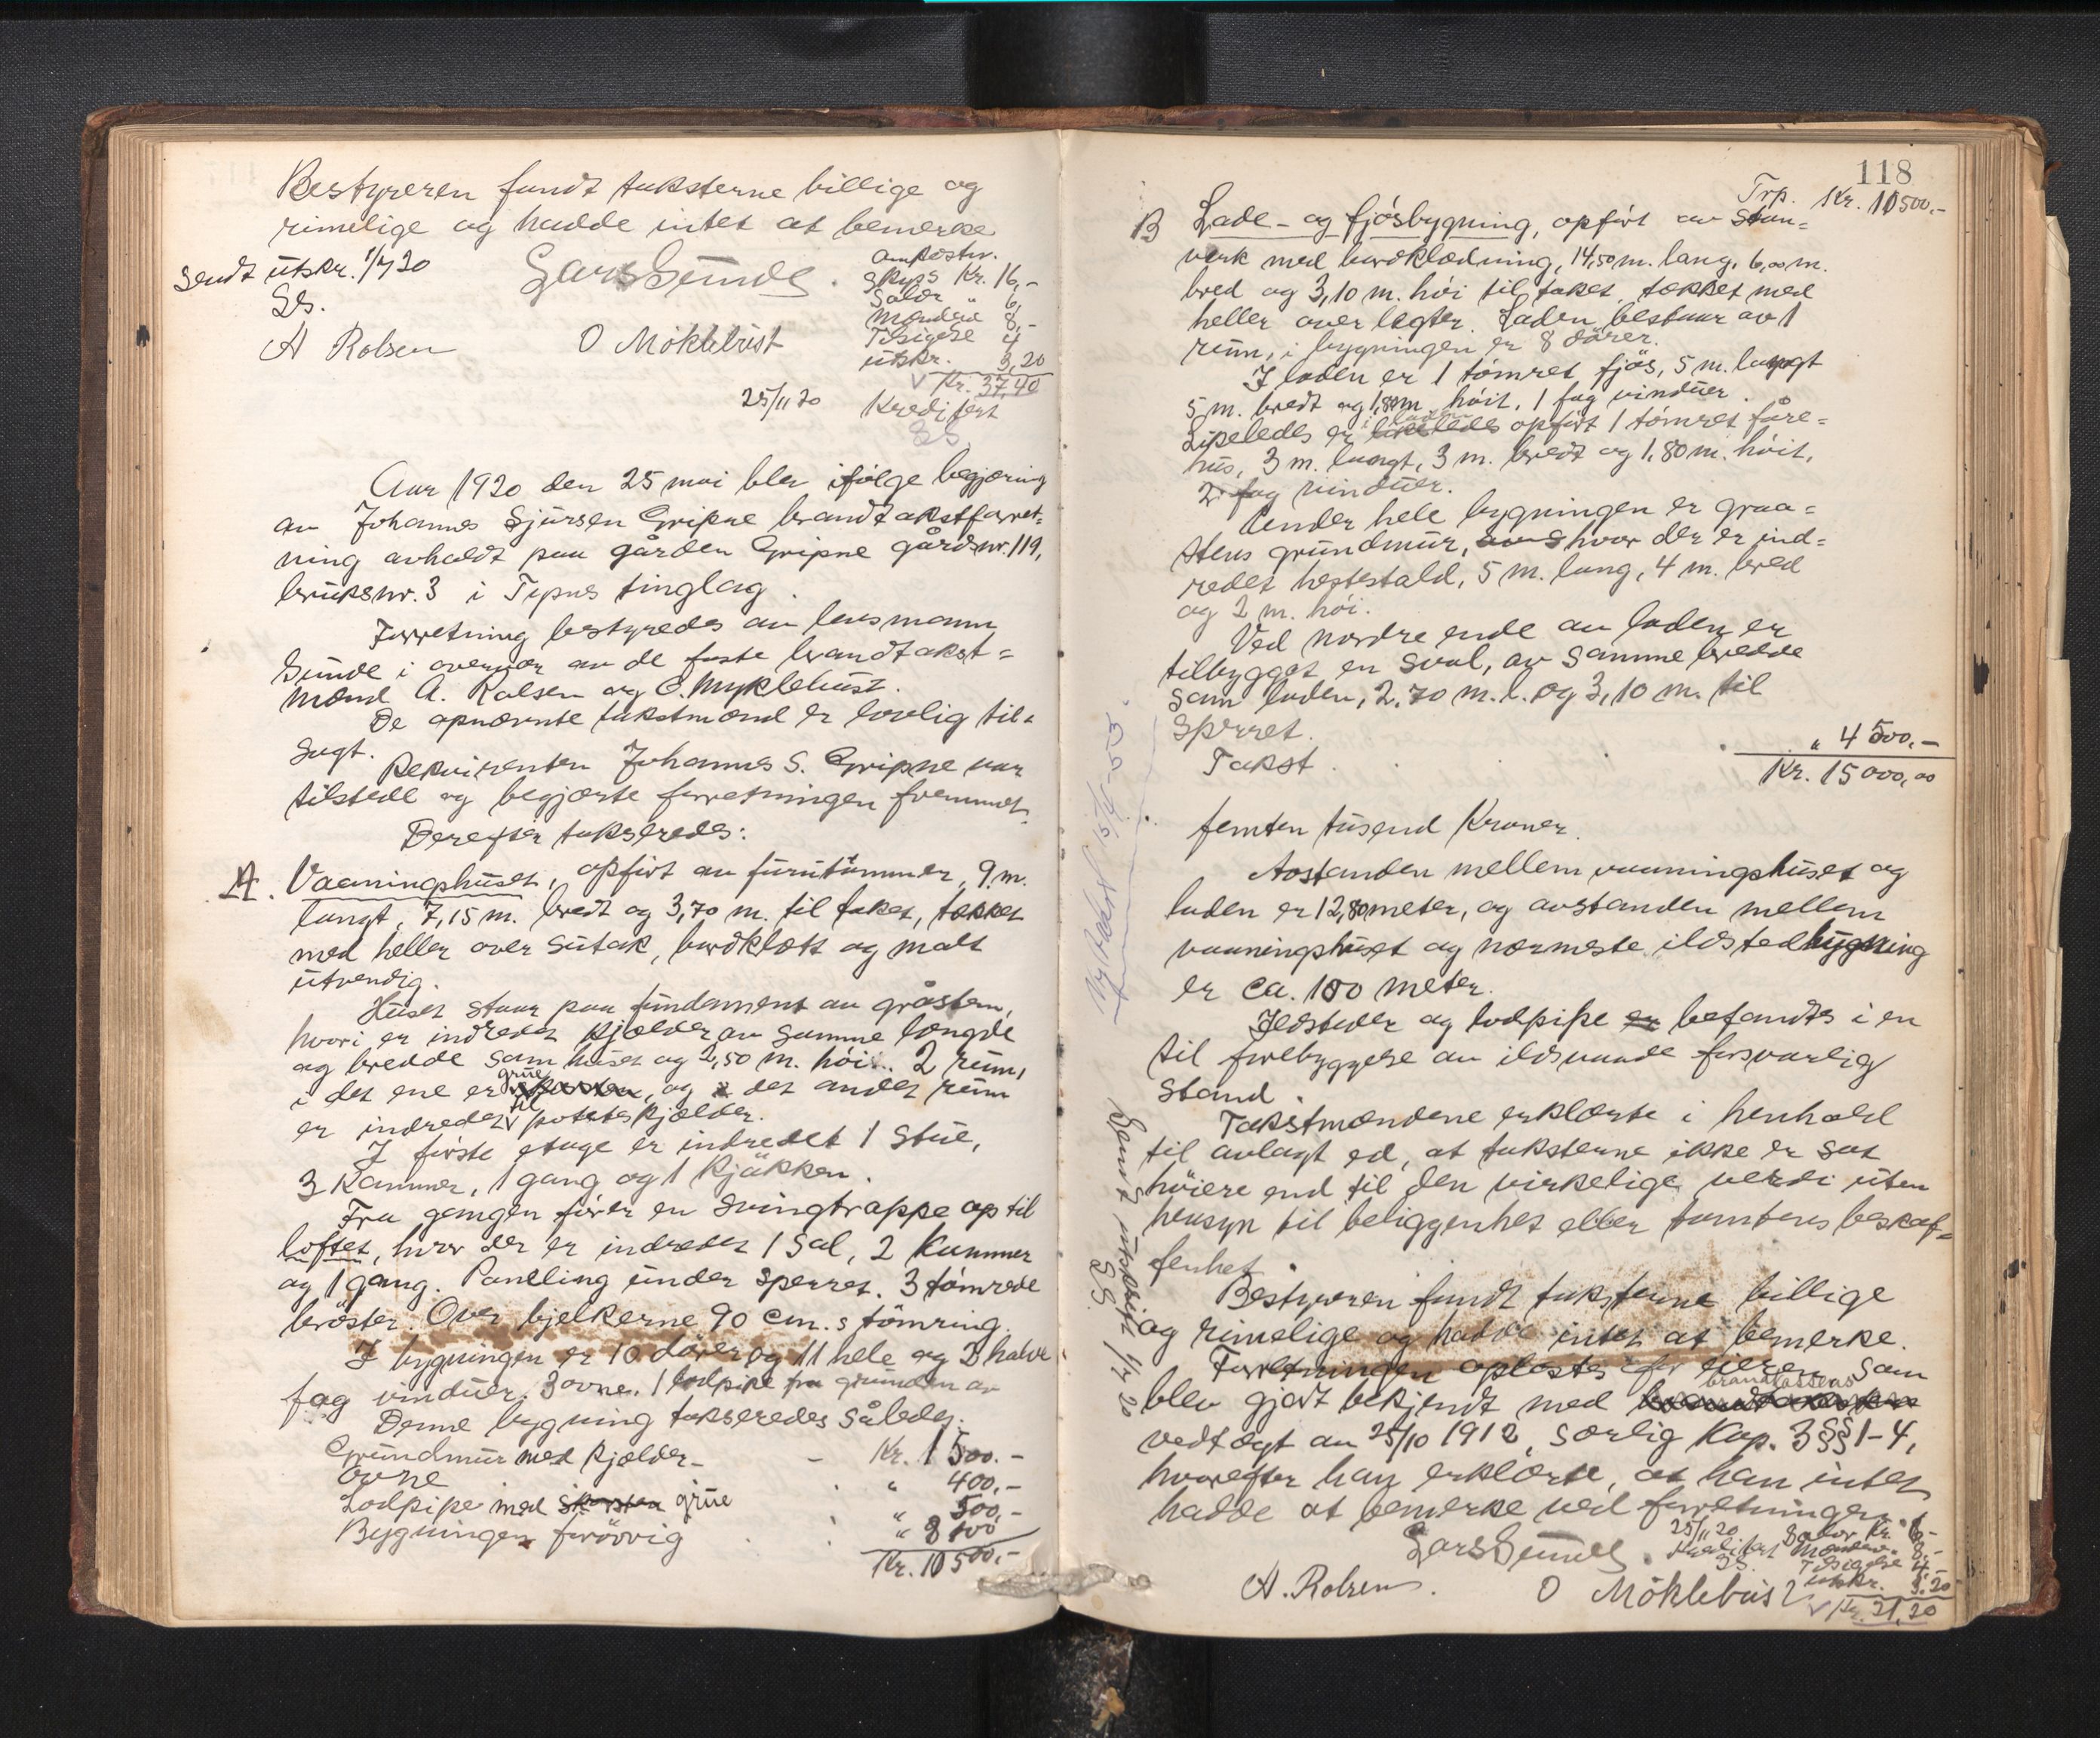 Bestyreren fandt taksterne billige og
rimelige og hadde intet at bemerke.
Sendt utskr. 1/7 20
LS.
Lars Sunde.
omkostn.
Skyss Kr. 16,-
Salær " 6,
Mændene 8,-
Tilsigelse 4
utskr. 3,20
Kr. 37,40
A Rolsen
O Möklebust
25/11 20 Kreditert
LS
Aar 1920 den 25 mai blev ifølge begjæring
av Johannes Sjursen Gripne brandtakstforret-
ning avholdt paa gården Gripne gårdsnr. 119,
bruksnr. 3 i Tipnes tinglag.
Forretning bestyredes av lensmann
Sunde i overvær av de faste brandtakst=
mænd A. Rolsen og O. Myklebust.
De opnævnte takstmænd er lovlig til=
sagt.
Rekvirenten Johannes S. Gripne var
tilstede og begjærte forretningen fremmet.
Derefter takseredes:
A. Vaaningshuset, opført av furutømmer, 9 m.
langt, 7,15 m. bredt og 3,70 m. til taket, tækket
med heller over sutak, bordklætt og malt
utvendig.
Huset staar paa fundament av gråsten,
hvori er indredet kjælder av samme længde
og bredde som huset og 2,50 m. høi. 2 rum,
i det ene er grue, og det andet rum
er indredet til potetskjælder.
I første etage er indredet 1 stue,
3 kammer, 1 gang og 1 kjøkken.
Fra gangen fører en svingtrappe op til
loftet, hvor der er indredet 1 sal, 2 kammer
og 1 gang. Panelling under sperret. 3 tømrede
brøster. Over bjelkerne 90 cm.s tømring.
I bygningen er 10 dører og 11 hele og 3 halve
fag vinduer. 3 ovne. 1 lodpipe fra grunden av
Denne bygning takseredes således:
Grundmur med kjælder - - Kr. 1500.-
Ovne . " 400,-
Lodpipe med skorsten grue . " 500,-
Bygningen forøvrig . . " 8100
Kr. 10500,-
118
Trp. Kr. 10500,-
B Lade- og fjøsbygning, opført av stav=
verk med bordklædning, 14,50 m. lang, 6,00 m.
bred og 3,10 m. høi til taket, tækket med
heller over lægter. Laden bestaar av 1
rum, i bygningen er 8 dører.
I laden er 1 tømret fjøs, 5 m. langt
5 m. bredt og 1,80 m. høit, 1 fag vinduer.
Likeledes er i laden opført 1 tømret fåre=
hus, 3 m. langt, 3 m. bredt og 1,80 m. høit,
2 fag vinduer.
Under hele bygningen er graa=
stens grundmur, hvor der er ind=
redet hestestald, 5 m. lang, 4 m. bred
og 2 m. høi.
Ved nordre ende av laden er
tilbygget en sval, av samme bredde
som laden, 2,70 m. l. og 3,10 m. til
sperret. " 4500,-
Takst . . . Kr. 15000,00
femten tusend Kroner.
Avstanden mellem vaaningshuset og
laden er 12,80 meter, og avstanden mellem
vaaningshuset og nærmeste ildstedbygning
er ca. 100 meter.
Ildsteder og lodpipe befandtes i en
til forebyggelse av ildsvaade forsvarlig
stand.
Takstmændene erklærte i henhold
til avlagt ed, at taksterne ikke er sat
høiere end til den virkelige verdi uten
hensyn til beliggenhet eller tomtens beskaf=
fenhet.
Bestyreren fandt taksterne billige
og rimelige og hadde intet at bemerke.
Forretningen oplæstes for eieren, som
blev gjort bekjendt med brandkassens
vedtægt av 25/10 1912, særlig Kap. 3 §§ 1-4,
hvorefter han erklærte, at han intet
hadde at bemerke ved forretningen.
Lars Sunde.
25/11 20
Kreditert
LS.
Salær Kr. 6-
Mændene. 8,-
Tilsigelse 4,-
utskr. 3.20
Kr. 21,20
A. Rolsen.
O Möklebust
Sendt utskrift 1/7 20
LS.